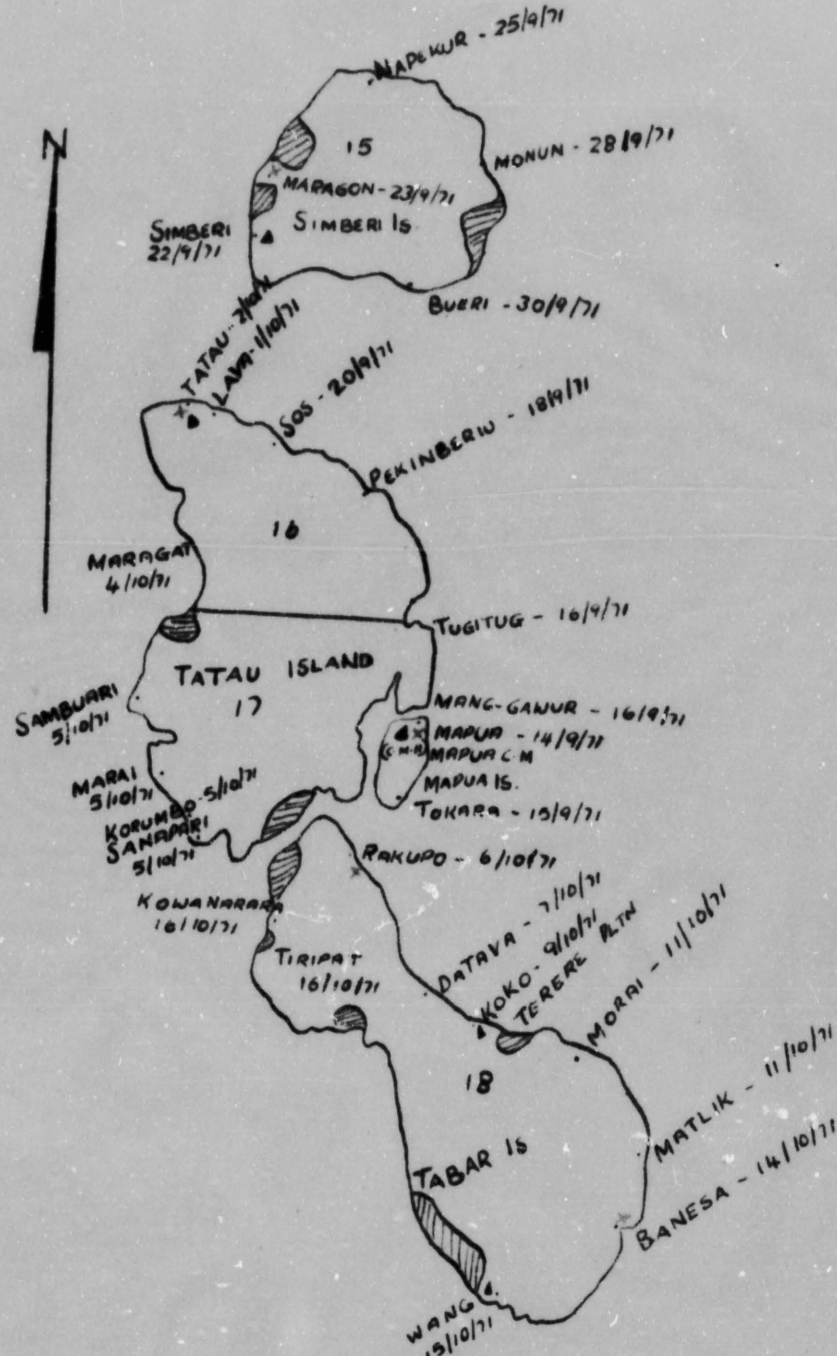 NAPEKUR - 25/9/71
N
15
MONUN - 28/9/71
MARAGON - 23/9/71
SIMBERI IS.
SIMBERI
22/9/71
BUERI - 30/9/71
TATAU - 2/10/71
LAVA - 1/10/71
SOS - 20/9/71
PEKINBERIU - 18/9/71
16
MARAGAT
4/10/71
TUGITUG - 16/9/71
TATAU ISLAND
17
SAMBUARI
5/10/71
MANG-GANUR - 16/9/71
MAPUA - 14/9/71
C.M.A
MAPUA C.M
MAPUA IS.
TOKARA - 15/9/71
MARAI
5/10/71
KORUMBO - 5/10/71
SANAPARI
5/10/71
RAKUPO - 6/10/71
KOWANARARA
16/10/71
TIRIPAT
16/10/71
DATAVA - 7/10/71
KOKO - 9/10/71
TERERE PLTN
MORAI - 11/10/71
18
MATLIK - 11/10/71
TABAR IS
BANESA - 14/10/71
WANG
15/10/71